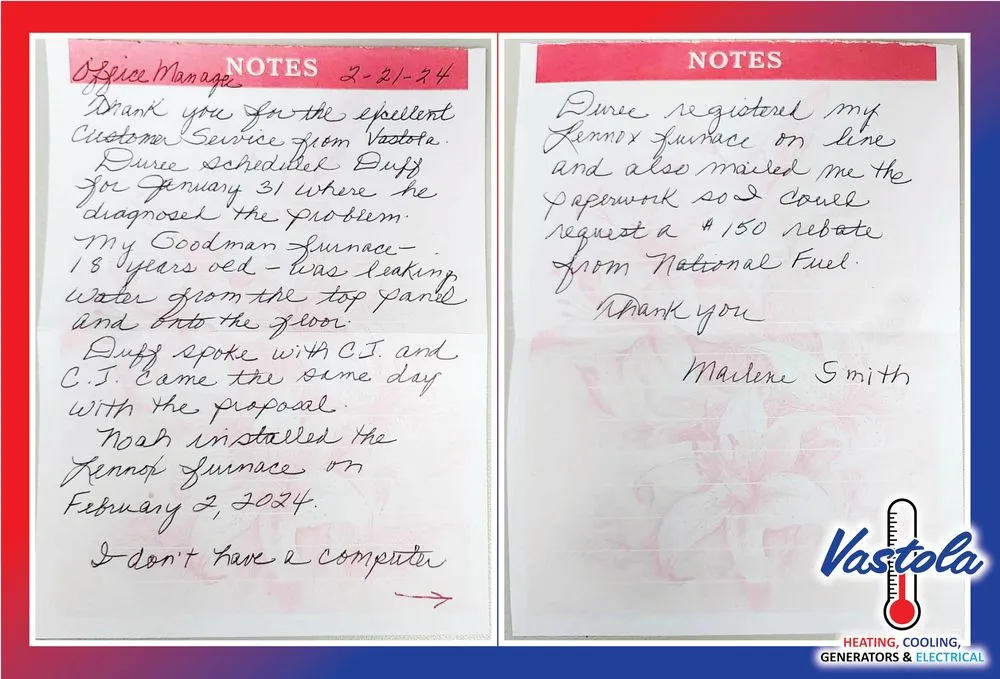 NOTES
Office Manager 2-21-24
Thank you for the excellent
Customer Service from Vastola.
Duree scheduled Duff
for January 31 where he
diagnosed the problem.
My Goodman furnace-
18 years old - was leaking
water from the top panel
and onto the floor.
Duff spoke with C.J. and
C.J. came the same day
with the proposal.
Noah installed the
Lennox furnace on
February 2, 2024.
I don't have a computer
→
NOTES
Duree registered my
Lennox furnace on line
and also mailed me the
paperwork so I could
request a $150 rebate
from National Fuel.
Thank you
Marlene Smith
Vastola
HEATING, COOLING,
GENERATORS & ELECTRICAL